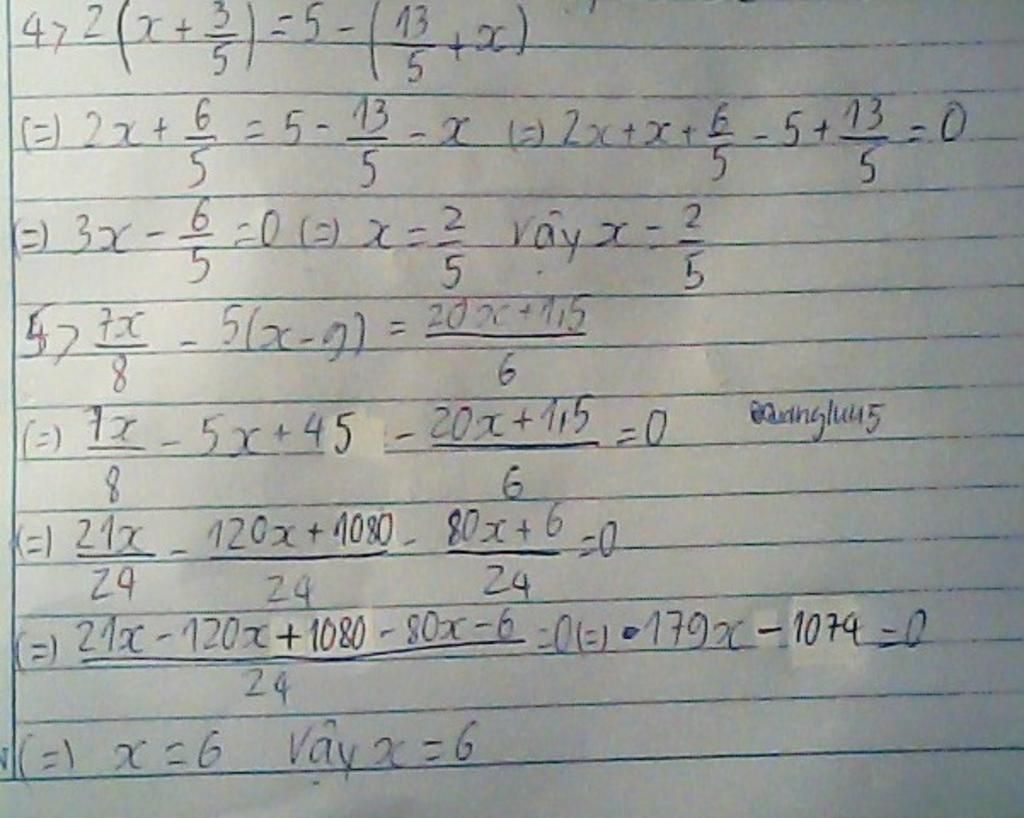 4> 2(x + 3/5) = 5 - (13/5 + x)
(=) 2x + 6/5 = 5 - 13/5 - x (=) 2x + x + 6/5 - 5 + 13/5 = 0
(=) 3x - 6/5 = 0 (=) x = 2/5 Vậy x = 2/5
5> 7x/8 - 5(x - 9) = (20x + 1,5)/6
(=) 7x/8 - 5x + 45 - (20x + 1,5)/6 = 0
(=) 21x/24 - (120x + 1080)/24 - (80x + 6)/24 = 0
(=) (21x - 120x + 1080 - 80x - 6)/24 = 0 (=) -179x - 1074 = 0
(=) x = 6 Vậy x = 6